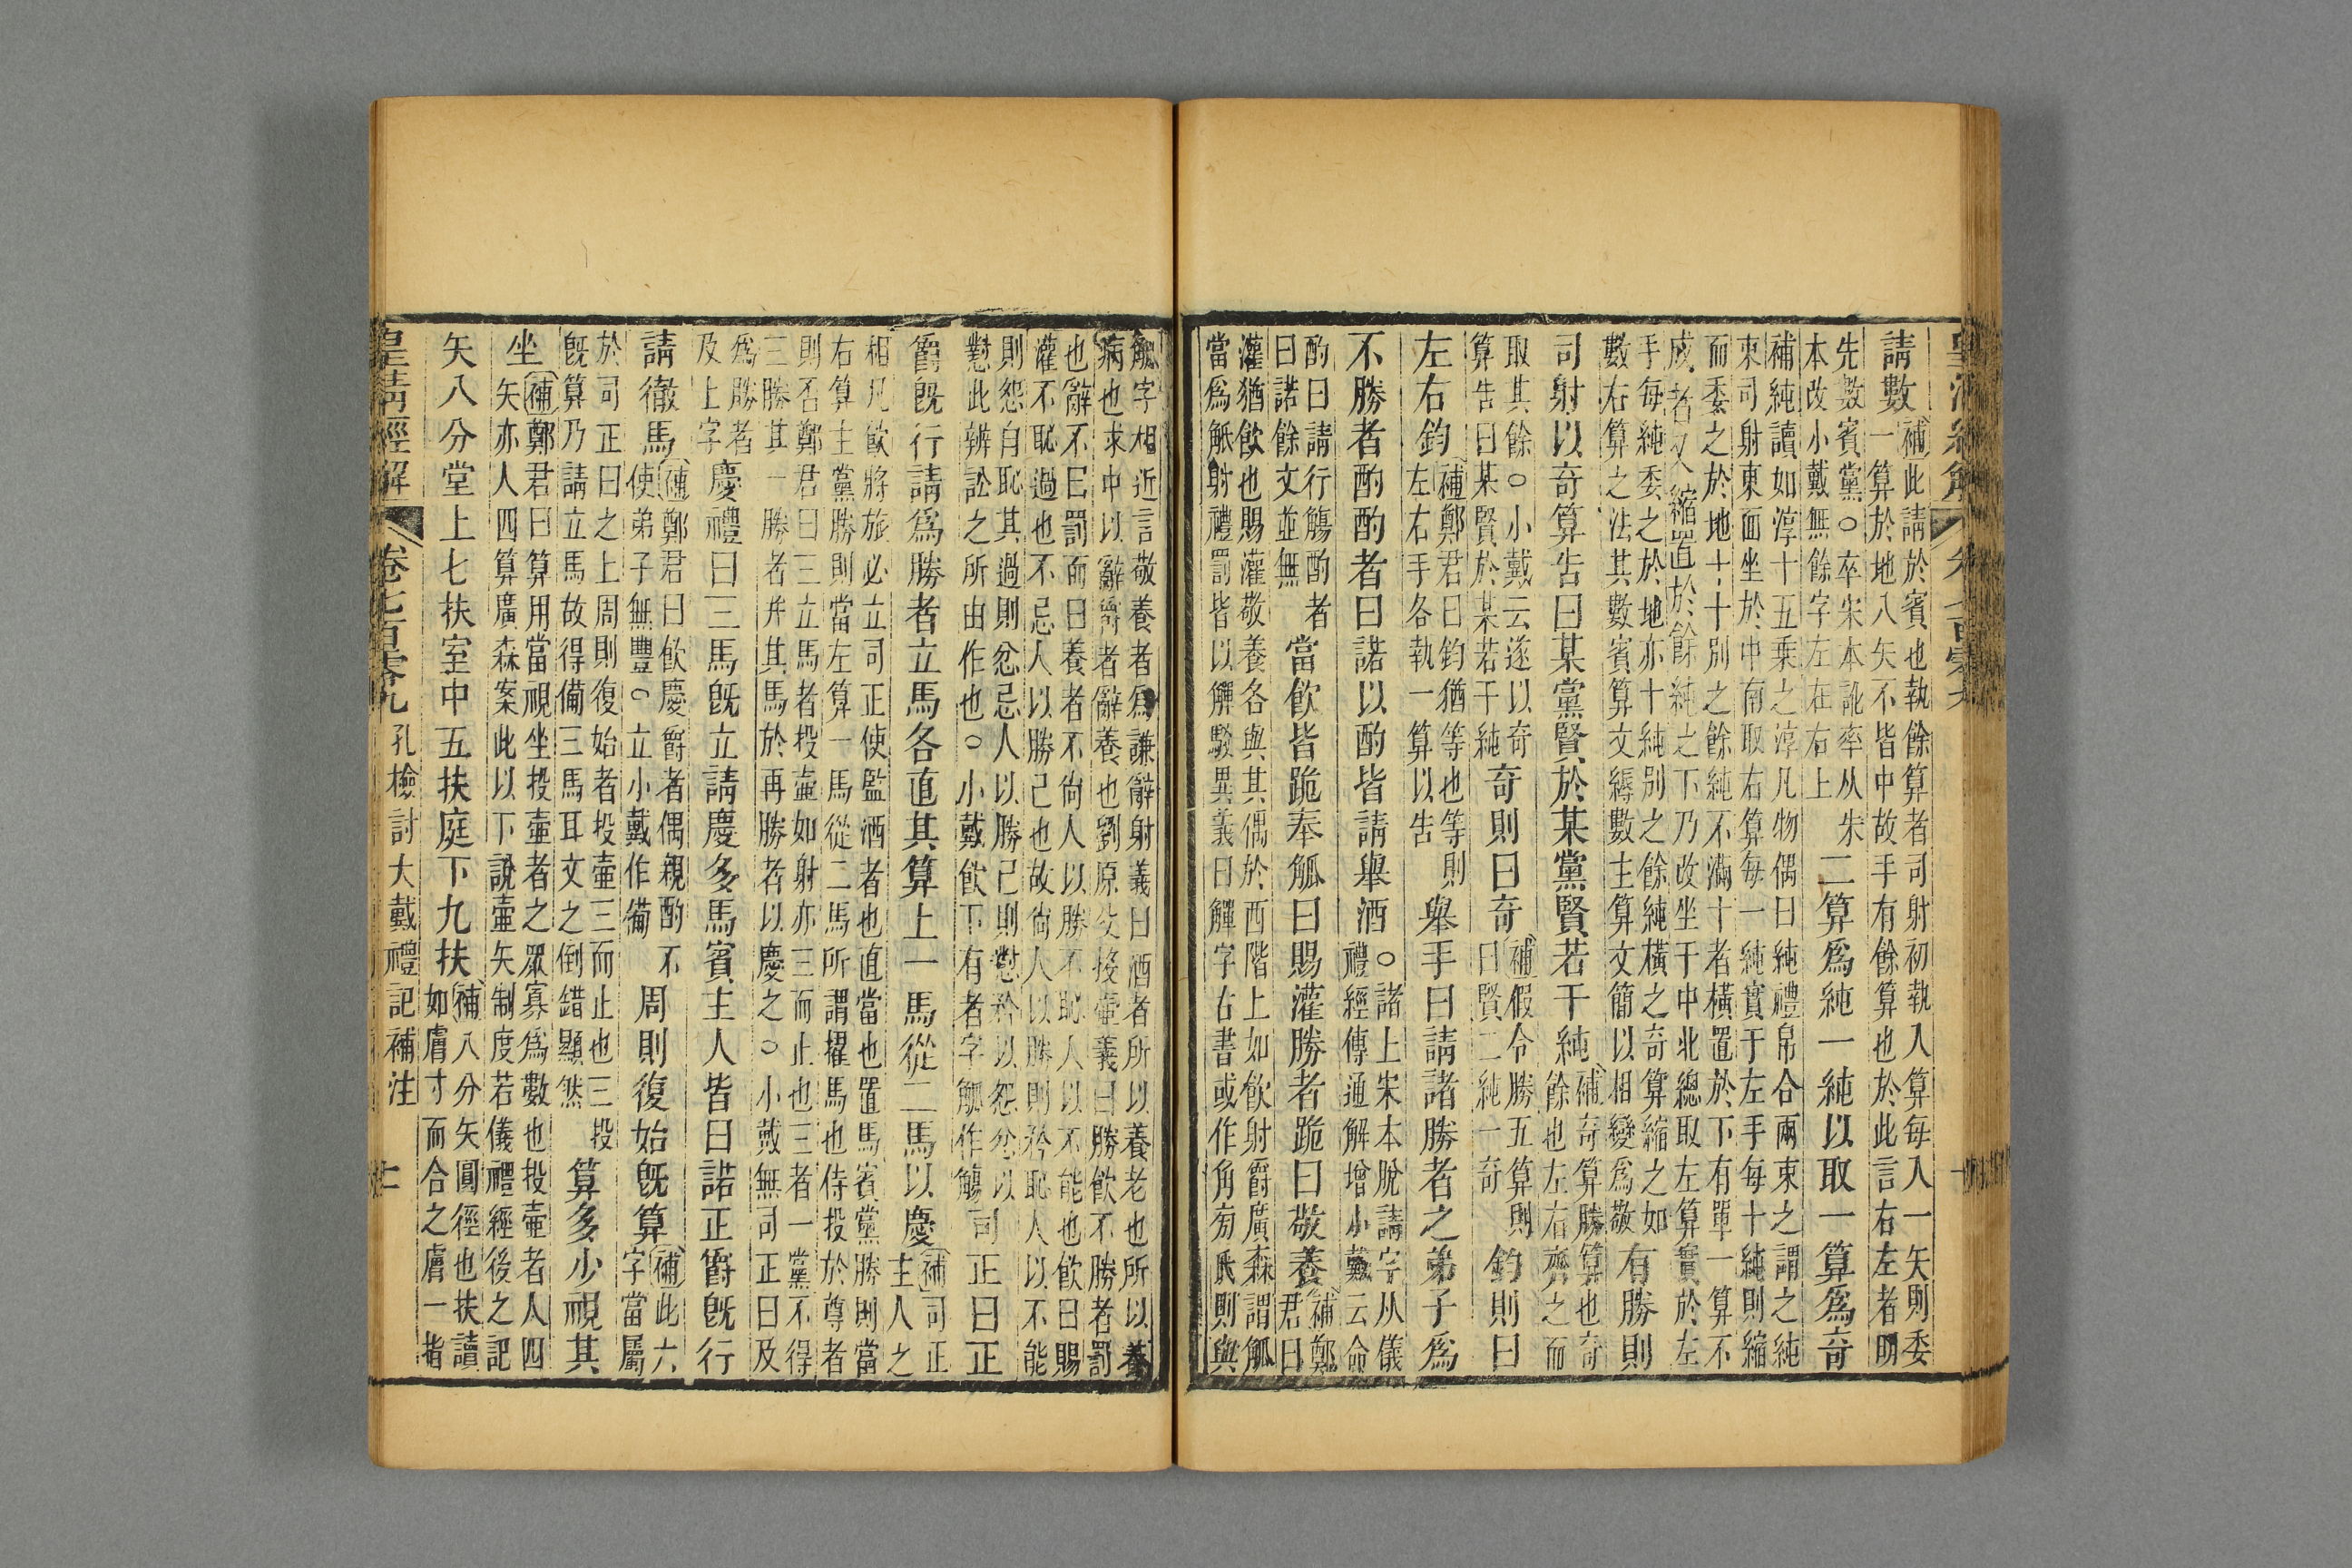 皇清經解
請數補此請於賓也執餘算者司射初執入算每入一矢則委
一算於地八矢不皆中故手有餘算也於此言右左者明
先數賓黨○卒宋本訛率从朱
本改小戴無餘字左在右上
二算爲純一純以取一算爲奇
補純讀如淳十五乗之淳凡物偶曰純禮帛合兩束之謂之純
束司射東面坐於中南取右算每一純實于左手每十純則縮
而委之於地十十別之餘純不滿十者橫置於下有單一算不
成者又縮置於餘純之下乃改坐于中北總取左算實於左
手每純委之於地亦十純別之餘純橫之奇算縮之如
數右算之法其數賓算文縟數主算文簡以相變爲敬
有勝則
司射以奇算告曰某黨賢於某黨賢若干純補奇算勝算也奇
餘也左右齊之而
取其餘○小戴云遂以奇
算告曰某賢於某若干純
奇則曰奇補假令勝五算則
曰賢二純一奇
鈞則曰
左右鈞補鄭君曰鈞猶等也等則
左右手各執一算以告
舉手曰請諸勝者之弟子爲
不勝者酌酌者曰諾以酌皆請舉酒○諸上宋本脫請字从儀
禮經傳通解增小戴云命
酌曰請行觴酌者
曰諾餘文並無
當飲皆跪奉觚曰賜灌勝者跪曰敬養補鄭
君曰
灌猶飲也賜灌敬養各與其偶於西階上如飲射爵廣森謂觚
當爲觗射禮罰皆以觶駮異義曰觶字古書或作角旁氏則與
觚字相近言敬養者爲謙辭射義曰酒者所以養老也所以養
病也求中以辭爵者辭養也劉原父投壺義曰勝飲不勝者罰
也辭不曰罰而曰養者不尙人以勝不恥人以不能也飲曰賜
灌不恥過也不忌人以勝己也故尙人以勝則矜恥人以不能
則怨自恥其過則忿忌人以勝己則懟矜以怨忿以
懟此辨訟之所由作也○小戴飲下有者字觚作觴
司正曰正
爵旣行請爲勝者立馬各直其算上一馬從二馬以慶補司正
主人之
相凡飮將旅必立司正使監酒者也直當也置馬賓黨勝則當
右算主黨勝則當左算一馬從二馬所謂擢馬也侍投於尊者
則否鄭君曰三立馬者投壺如射亦三而止也三者一黨不得
三勝其一勝者幷其馬於再勝者以慶之○小戴無司正曰及
爲勝者
及上字
慶禮曰三馬旣立請慶多馬賓主人皆曰諾正爵旣行
請徹馬補鄭君曰飲慶爵者偶親酌不
使弟子無豐○立小戴作備
周則復始旣算補此六
字當屬
於司正曰之上周則復始者投壺三而止也三投
旣算乃請立馬故得備三馬耳文之倒錯顯然
算多少視其
坐補鄭君曰算用當視坐投壺者之眾寡爲數也投壺者人四
矢亦人四算廣森案此以下說壺矢制度若儀禮經後之記
矢八分堂上七扶室中五扶庭下九扶補八分矢圓徑也扶讀
如膚寸而合之膚一指
皇清經解 卷七百零九 孔檢討大戴禮記補注 十一